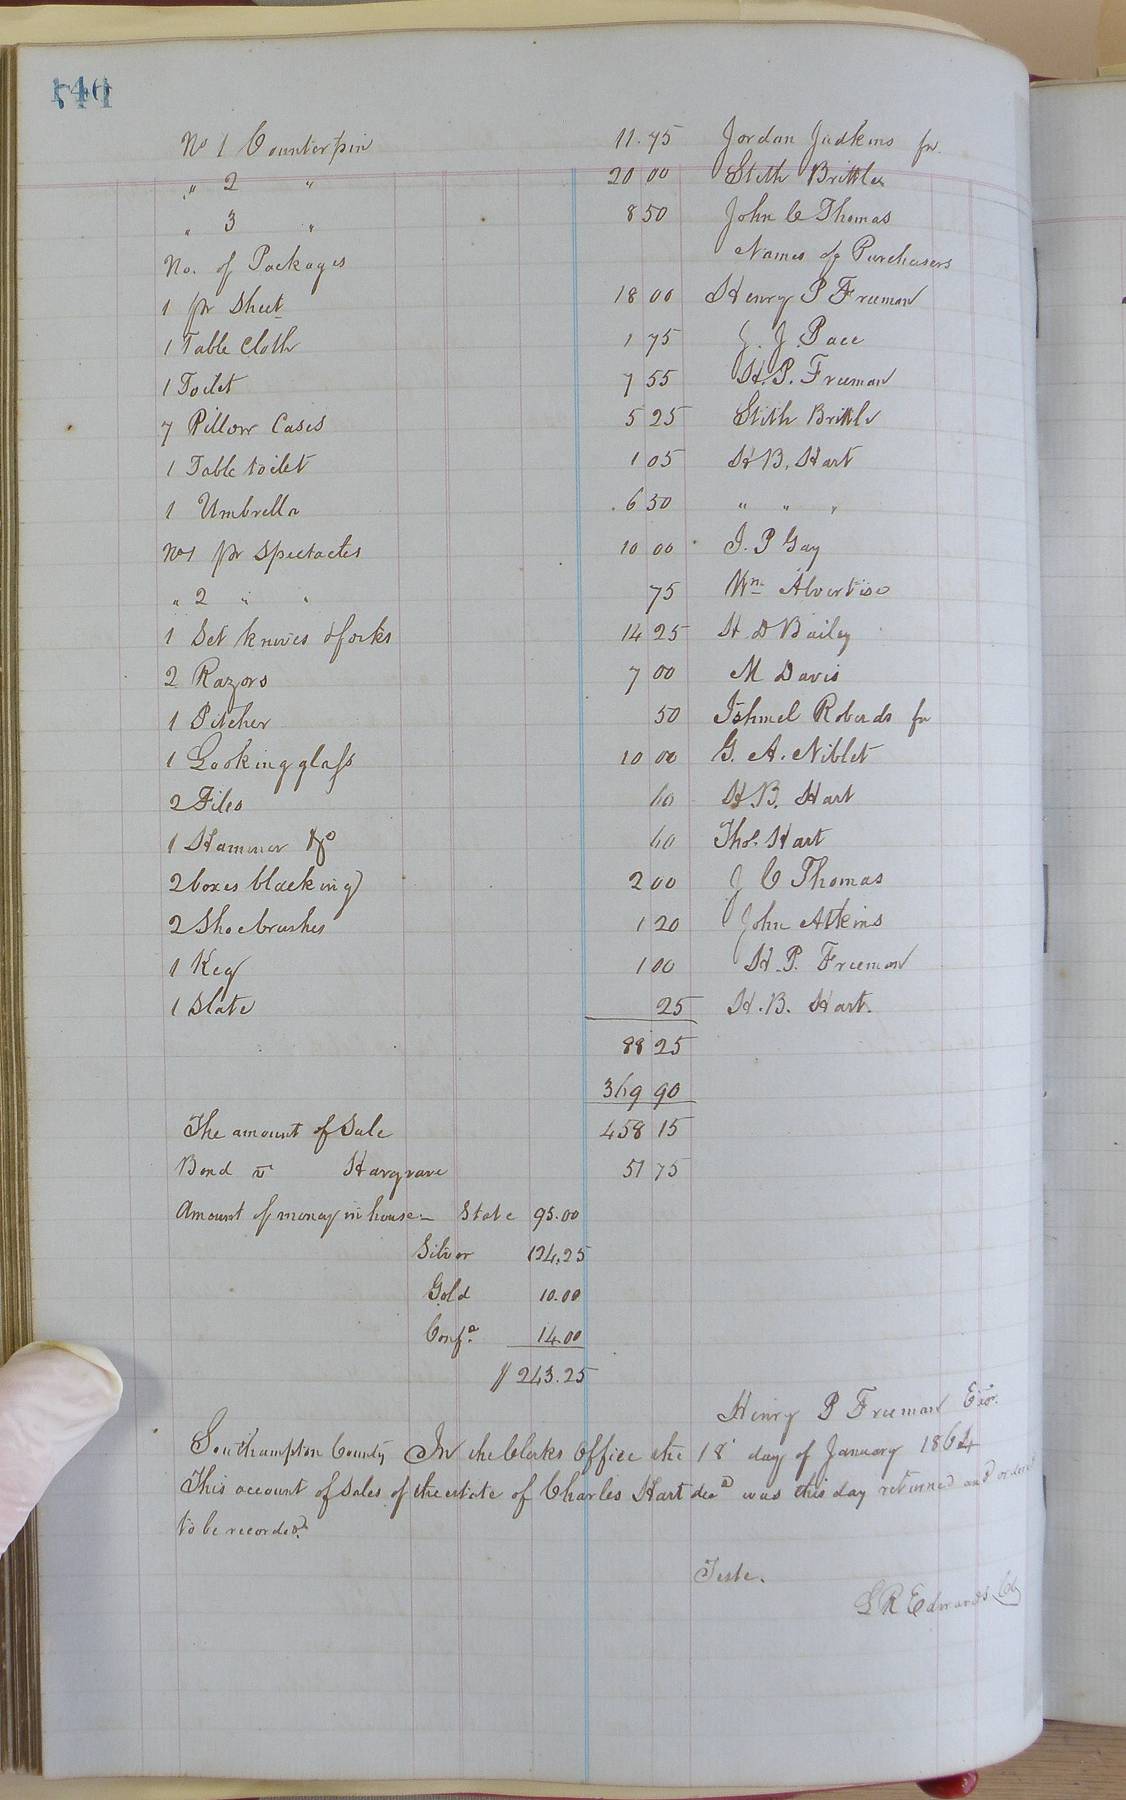 No 1 Counterpin 11.75 Jordan Judkins fn.
" 2 " 20 00 Stith Brittle
" 3 " 8 50 John C Thomas
No. of Packages Names of Purchasers
1 pr Sheet 18 00 Henry P Freeman
1 Table Cloth 1 75 J. J. Pace
1 Toilet 7 55 H. P. Freeman
7 Pillow Cases 5 25 Stith Brittle
1 Table toilet 1 05 H B. Hart
1 Umbrella 6 50 " " "
No 1 pr Spectacles 10 00 J. P Gay
" 2 " " 75 Wm Alvertiso
1 Set knives & forks 14 25 H D Bailey
2 Razors 7 00 M Davis
1 Pitcher 50 Ishmel Roberds fn
1 Looking glass 10 00 G. A. Niblet
2 Files 60 H. B. Hart
1 Hammer &c 60 Thos. Hart
2 boxes blacking 2 00 J C Thomas
2 Shoe brushes 1 20 John Atkins
1 Keg 1 00 H. P. Freeman
1 Slate 25 H. B. Hart.
88 25
369 90
The amount of Sale 458 15
Bond Hargrave 51 75
Amount of money in house - State 95.00
Silver 124.25
Gold 10.00
Confa. 14.00
$ 243.25
Henry P Freeman Exor.
Southampton County In the Clerks Office the 18' day of January 1864
This account of Sales of the estate of Charles Hart decd was this day returned and ordered
to be recorded.
Teste.
L R Edwards Clk